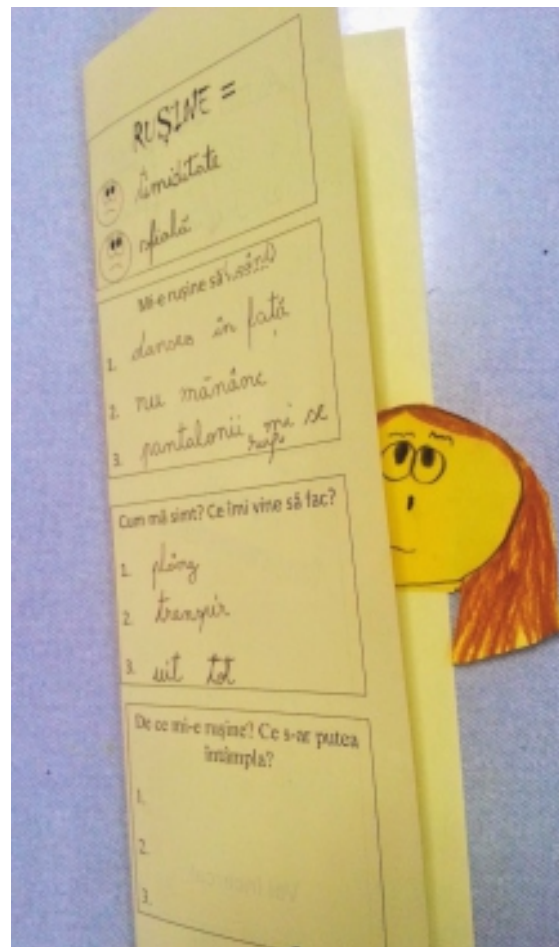 RUȘINE =
timiditate
sfială
Mi-e rușine să\când
1. dansez în față
2. nu mănânc
3. pantalonii mi se
rup
Cum mă simt? Ce îmi vine să fac?
1. plâng
2. transpir
3. uit tot
De ce mi-e rușine? Ce s-ar putea
întâmpla?
1.
2.
3.